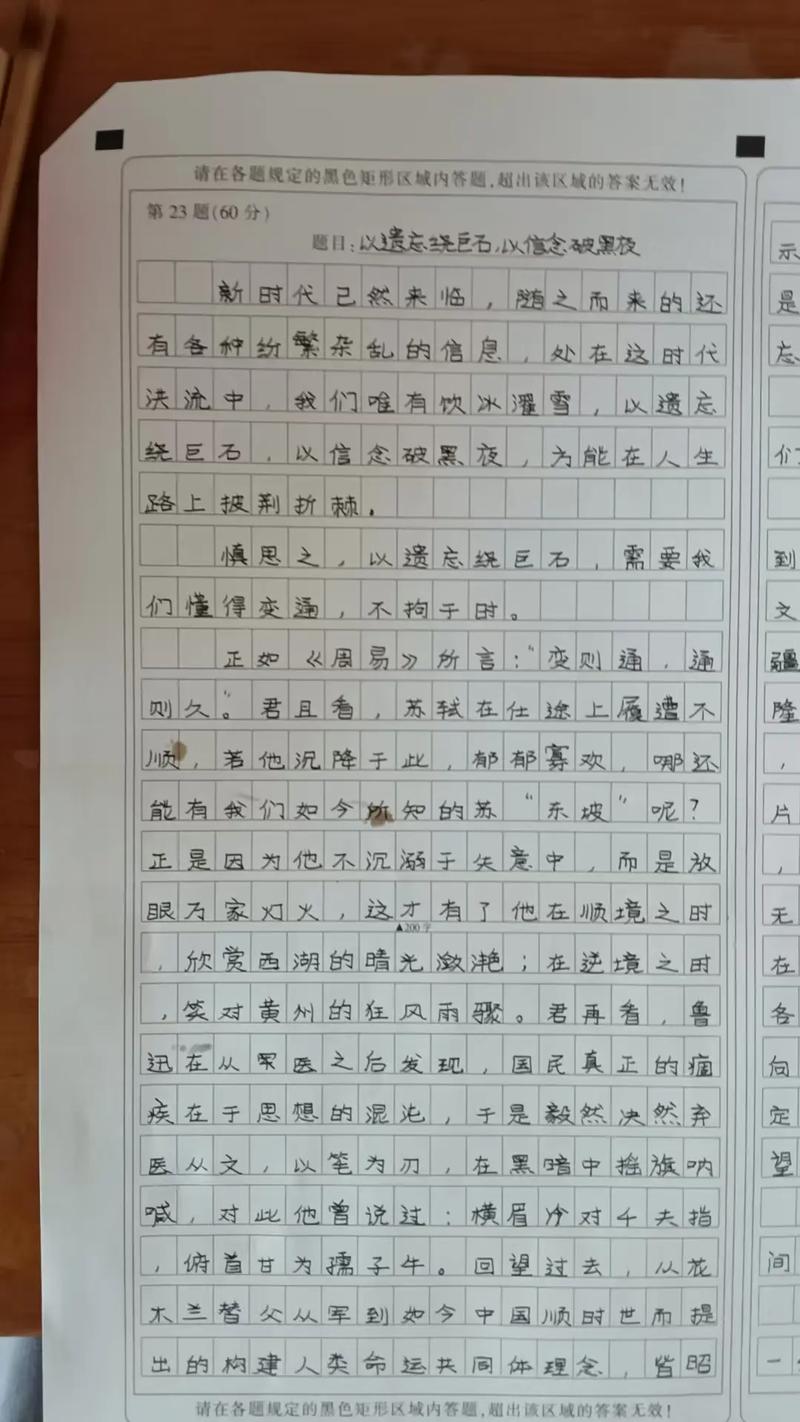 请在各题规定的黑色矩形区域内答题，超出该区域的答案无效！
第23题(60分)
题目：以遗忘绕巨石，以信念破黑夜
新时代已然来临，随之而来的还
有各种纷繁杂乱的信息，处在这时代
洪流中，我们唯有饮冰濯雪，以遗忘
绕巨石，以信念破黑夜，为能在人生
路上披荆折棘。
慎思之，以遗忘绕巨石，需要我
们懂得变通，不拘于时。
正如《周易》所言：“变则通，通
则久”。君且看，苏轼在仕途上履遭不
顺，若他沉降于此，郁郁寡欢，哪还
能有我们如今所知的苏“东坡”呢？
正是因为他不沉溺于失意中，而是放
眼万家灯火，这才有了他在顺境之时
▲200字
，欣赏西湖的晴光潋滟；在逆境之时
，笑对黄州的狂风雨骤。君再看，鲁
迅在从军医之后发现，国民真正的痼
疾在于思想的混沌，于是毅然决然弃
医从文，以笔为刃，在黑暗中摇旗呐
喊，对此他曾说过：横眉冷对千夫指
，俯首甘为孺子牛。回望过去，从花
木兰替父从军到如今中国顺时世而提
出的构建人类命运共同体理念，皆昭
请在各题规定的黑色矩形区域内答题，超出该区域的答案无效！
示
是
忘
们
到
文
疆
隆
，
片
，
无
在
各
向
定
望
间
一